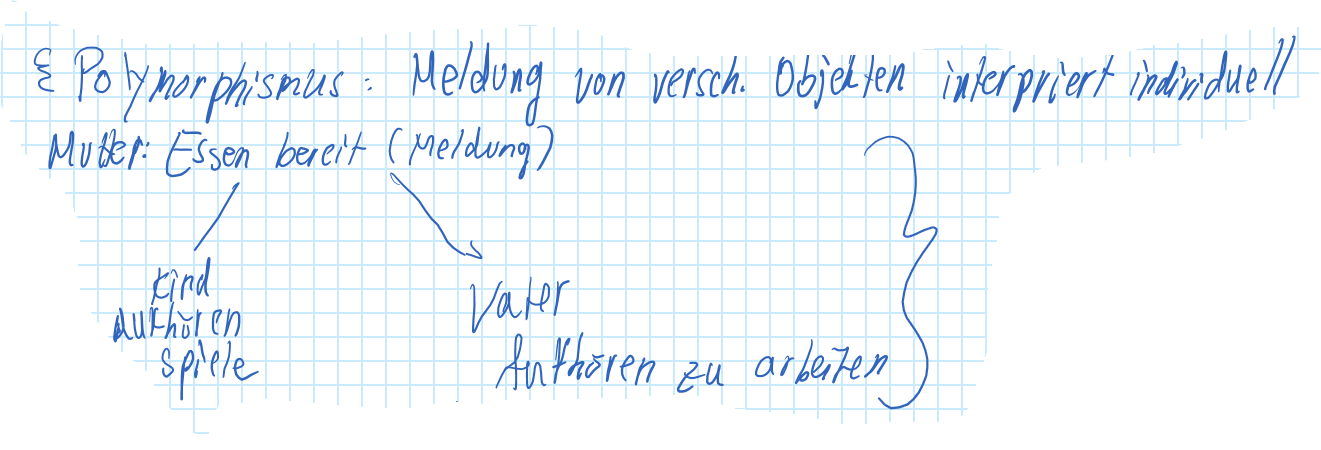 { Polymorphismus: Meldung von versch. Objekten interpriert individuell
Mutter: Essen bereit (Meldung)
Kind
aufhören
spiele
Vater
Aufhören zu arbeiten